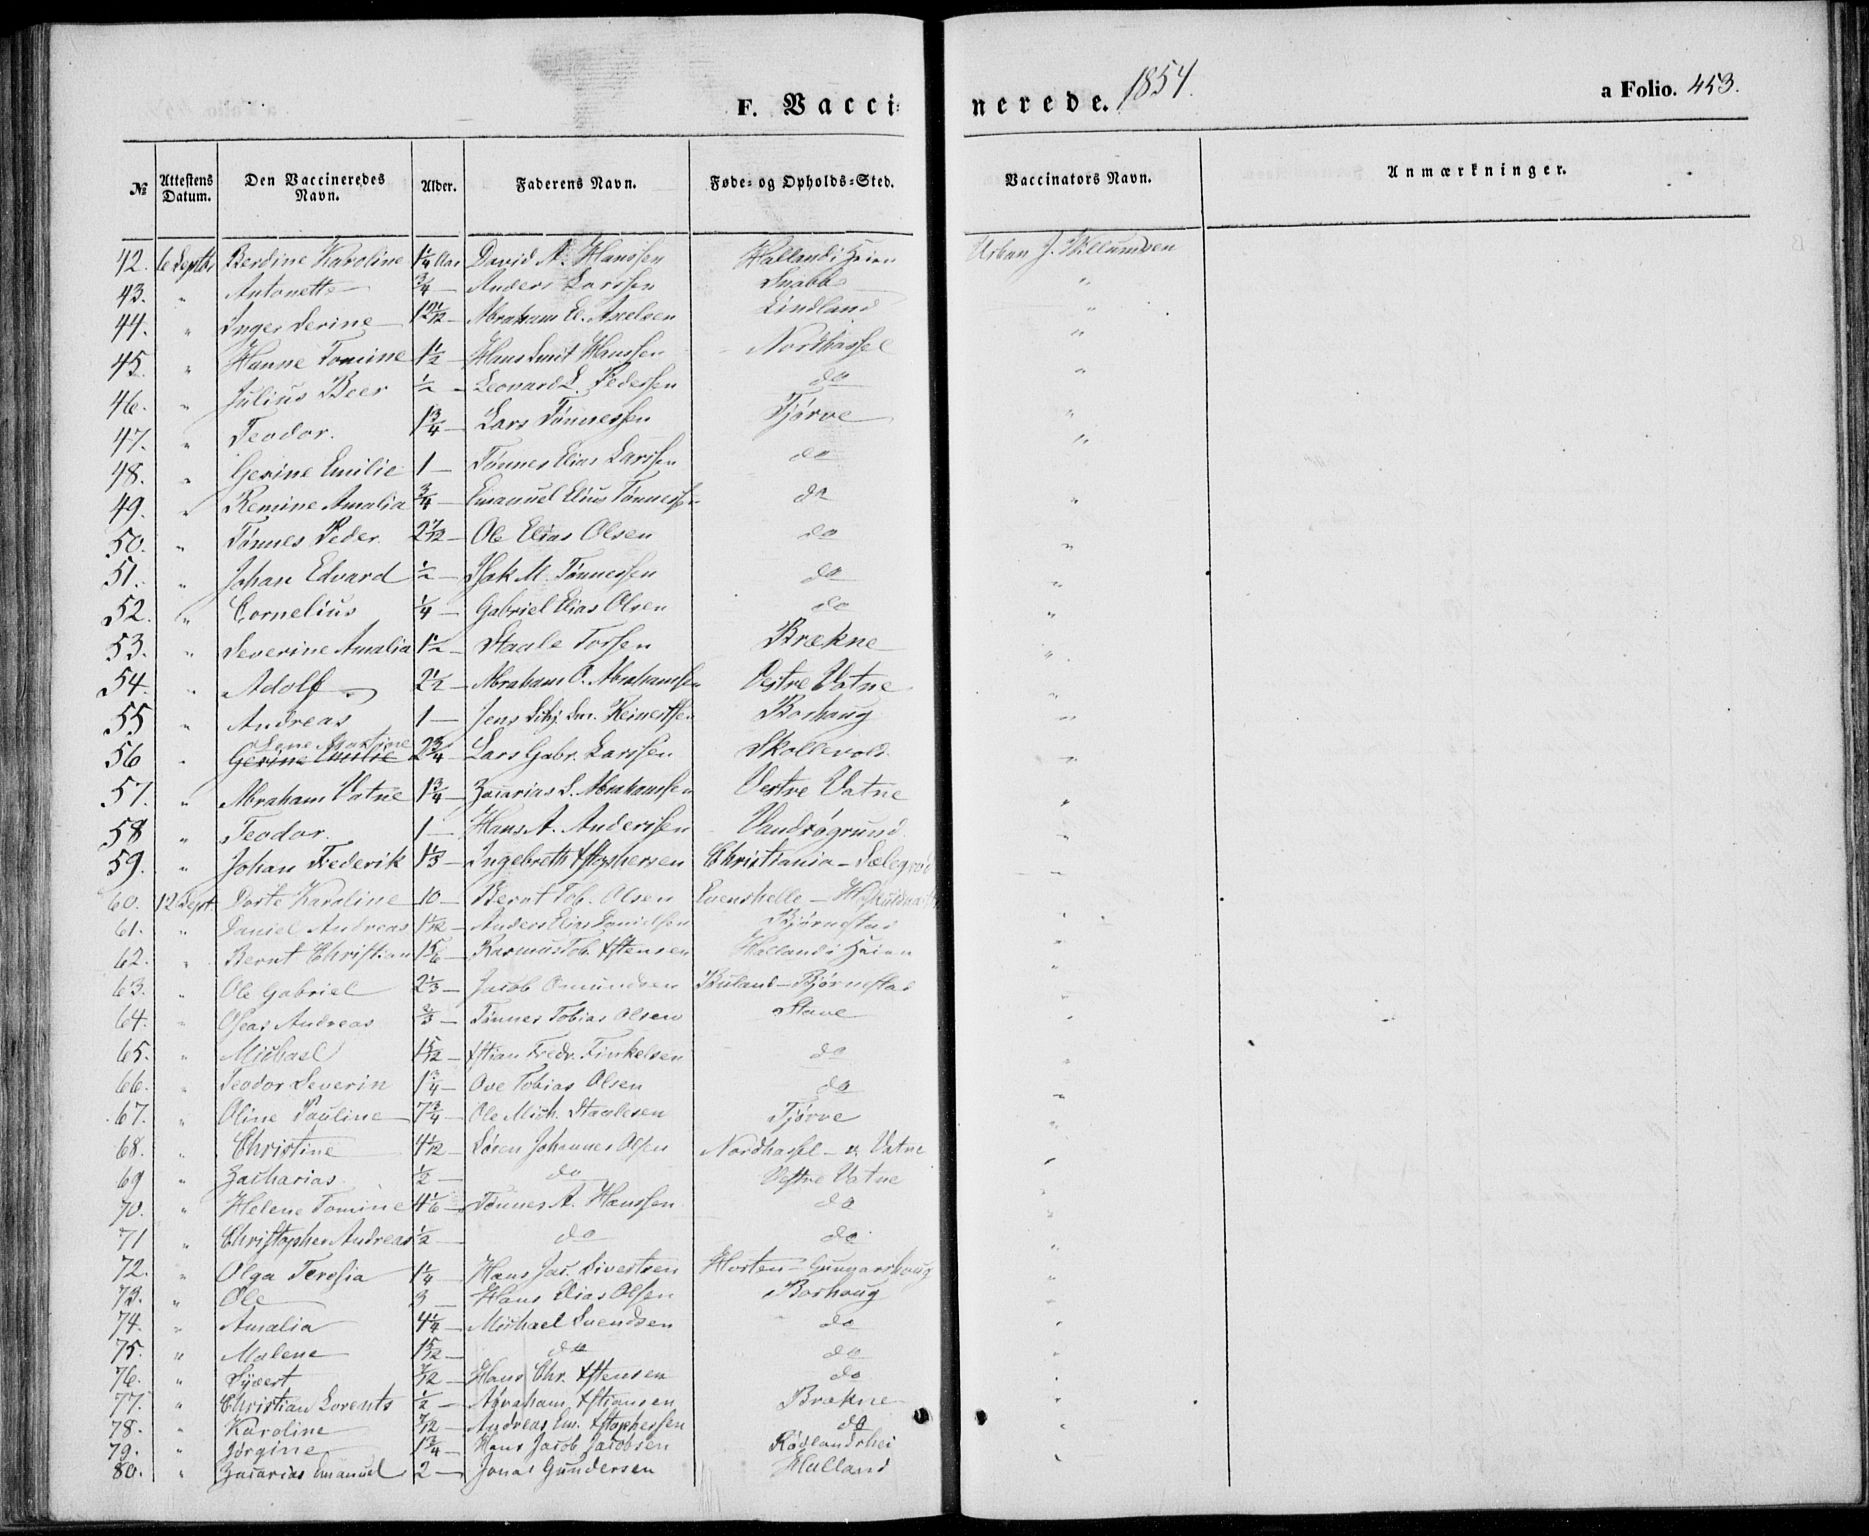 F. Vacci-nerede. 1854. a Folio. 453.
№ | Attestens Datum. | Den Vaccineredes Navn. | Alder. | Faderens Navn. | Føde- og Opholds-Sted. | Vaccinators Navn. | Anmærkninger.
42. 6 Septbr Berdine Karoline 1 1/4 Aar David A. Hanssen Halland i Heien Urban J. Willumsen
43. " Antonette 3/4 — Anders Larssen Snabbe "
44. " Inger Serine — Abraham El. Axelsen Lindland "
45. " Hanne Tomine 1 1/2 — Hans Smit Hanssen Nordhassel "
46. " Julius Beer 1/2 — Leonard L. Pedersen do "
47. " Teodor. 1 3/4 — Lars Tønnessen Tjørve "
48. " Gerine Emilie 1 — Tønnes Elias Larssen do "
49. " Remine Amalia 3/4 — Emanuel Elias Tønnessen do "
50. " Tønnes Peder 2 7/12 — Ole Elias Olsen do "
51. " Johan Edvard 1/2 — Isak M. Tønnessen do "
52. " Cornelius 1/4 — Gabriel Elias Olsen do "
53. " Severine Amalia 1 1/2 — Staale Torssen Brækne "
54. " Adolf 2 1/2 — Abraham O. Abrahamsen Vestre Vatne "
55 " Andreas 1 — Jens Reinertsen Borhaug "
56 " Lene Martine Gerine Emilie 2 3/4 — Lars Gabr. Larssen Skollevold. "
57. " Abraham Vatne 1 3/4 — Zacarias S. Abrahamssen Vestre Vatne "
58 " Teodor. 1 — Hans A. Anderssen Vandrøgrund. "
59. " Johan Frederik 1 1/3 — Ingebreth Xstophersen Christiania - "
60. 12 Sept. Dorte Karoline 10 — Bernt Tob. Olsen —
61. " Daniel Andreas 1 1/12 — Anders Elias Danielsen Bjørnestad "
62. " Bernt Christian 1 5/6 — Rasmus Tob. Xstensen Halland i Heien "
63. " Ole Gabriel 2 1/3 — Jacob Omundsen Buland - Bjørnestad "
64. " Oseas Andreas 2/3 — Tønnes Tobias Olsen Stave "
65. " Michael 1 5/12 — Xstian Fredr. Finkelsen do "
66. " Teodor Severin 1 3/4 — Ove Tobias Olsen do "
67. " Oline Pauline 7 3/4 — Ole Mich. Staalesen Tjørve "
68. " Christine 4 1/12 — Søren Johannes Olsen Nordhassel - v. Vatne "
69 " Zacharias 1/2 — do Vestre Vatne "
70. " Helene Tomine 4 1/6 — Tønnes A. Hanssen do "
71 " Christopher Andreas 1/2 — do do "
72. " Olga Teresia 1 1/4 — Hans Jac. Sivertsen Horten - Gunnarshaug "
73. " Ole 3 — Hans Elias Olsen Borhaug "
74. " Amalia 4 1/4 — Michael Svendsen do "
75. " Malene 1 5/12 — do do "
76. " Syvert — Hans Chr. Xstensen do "
77. " Christian Lorents 1/2 — Abraham Xstiansen Brækne "
78. " Karoline 7/12 — Andreas Em. Xstophersen do "
79. " Jørgine 1 3/4 — Hans Jacob Jacobsen Rødlandshei "
80. " Zacarias Emanuel 2 — Jonas Gundersen Halland